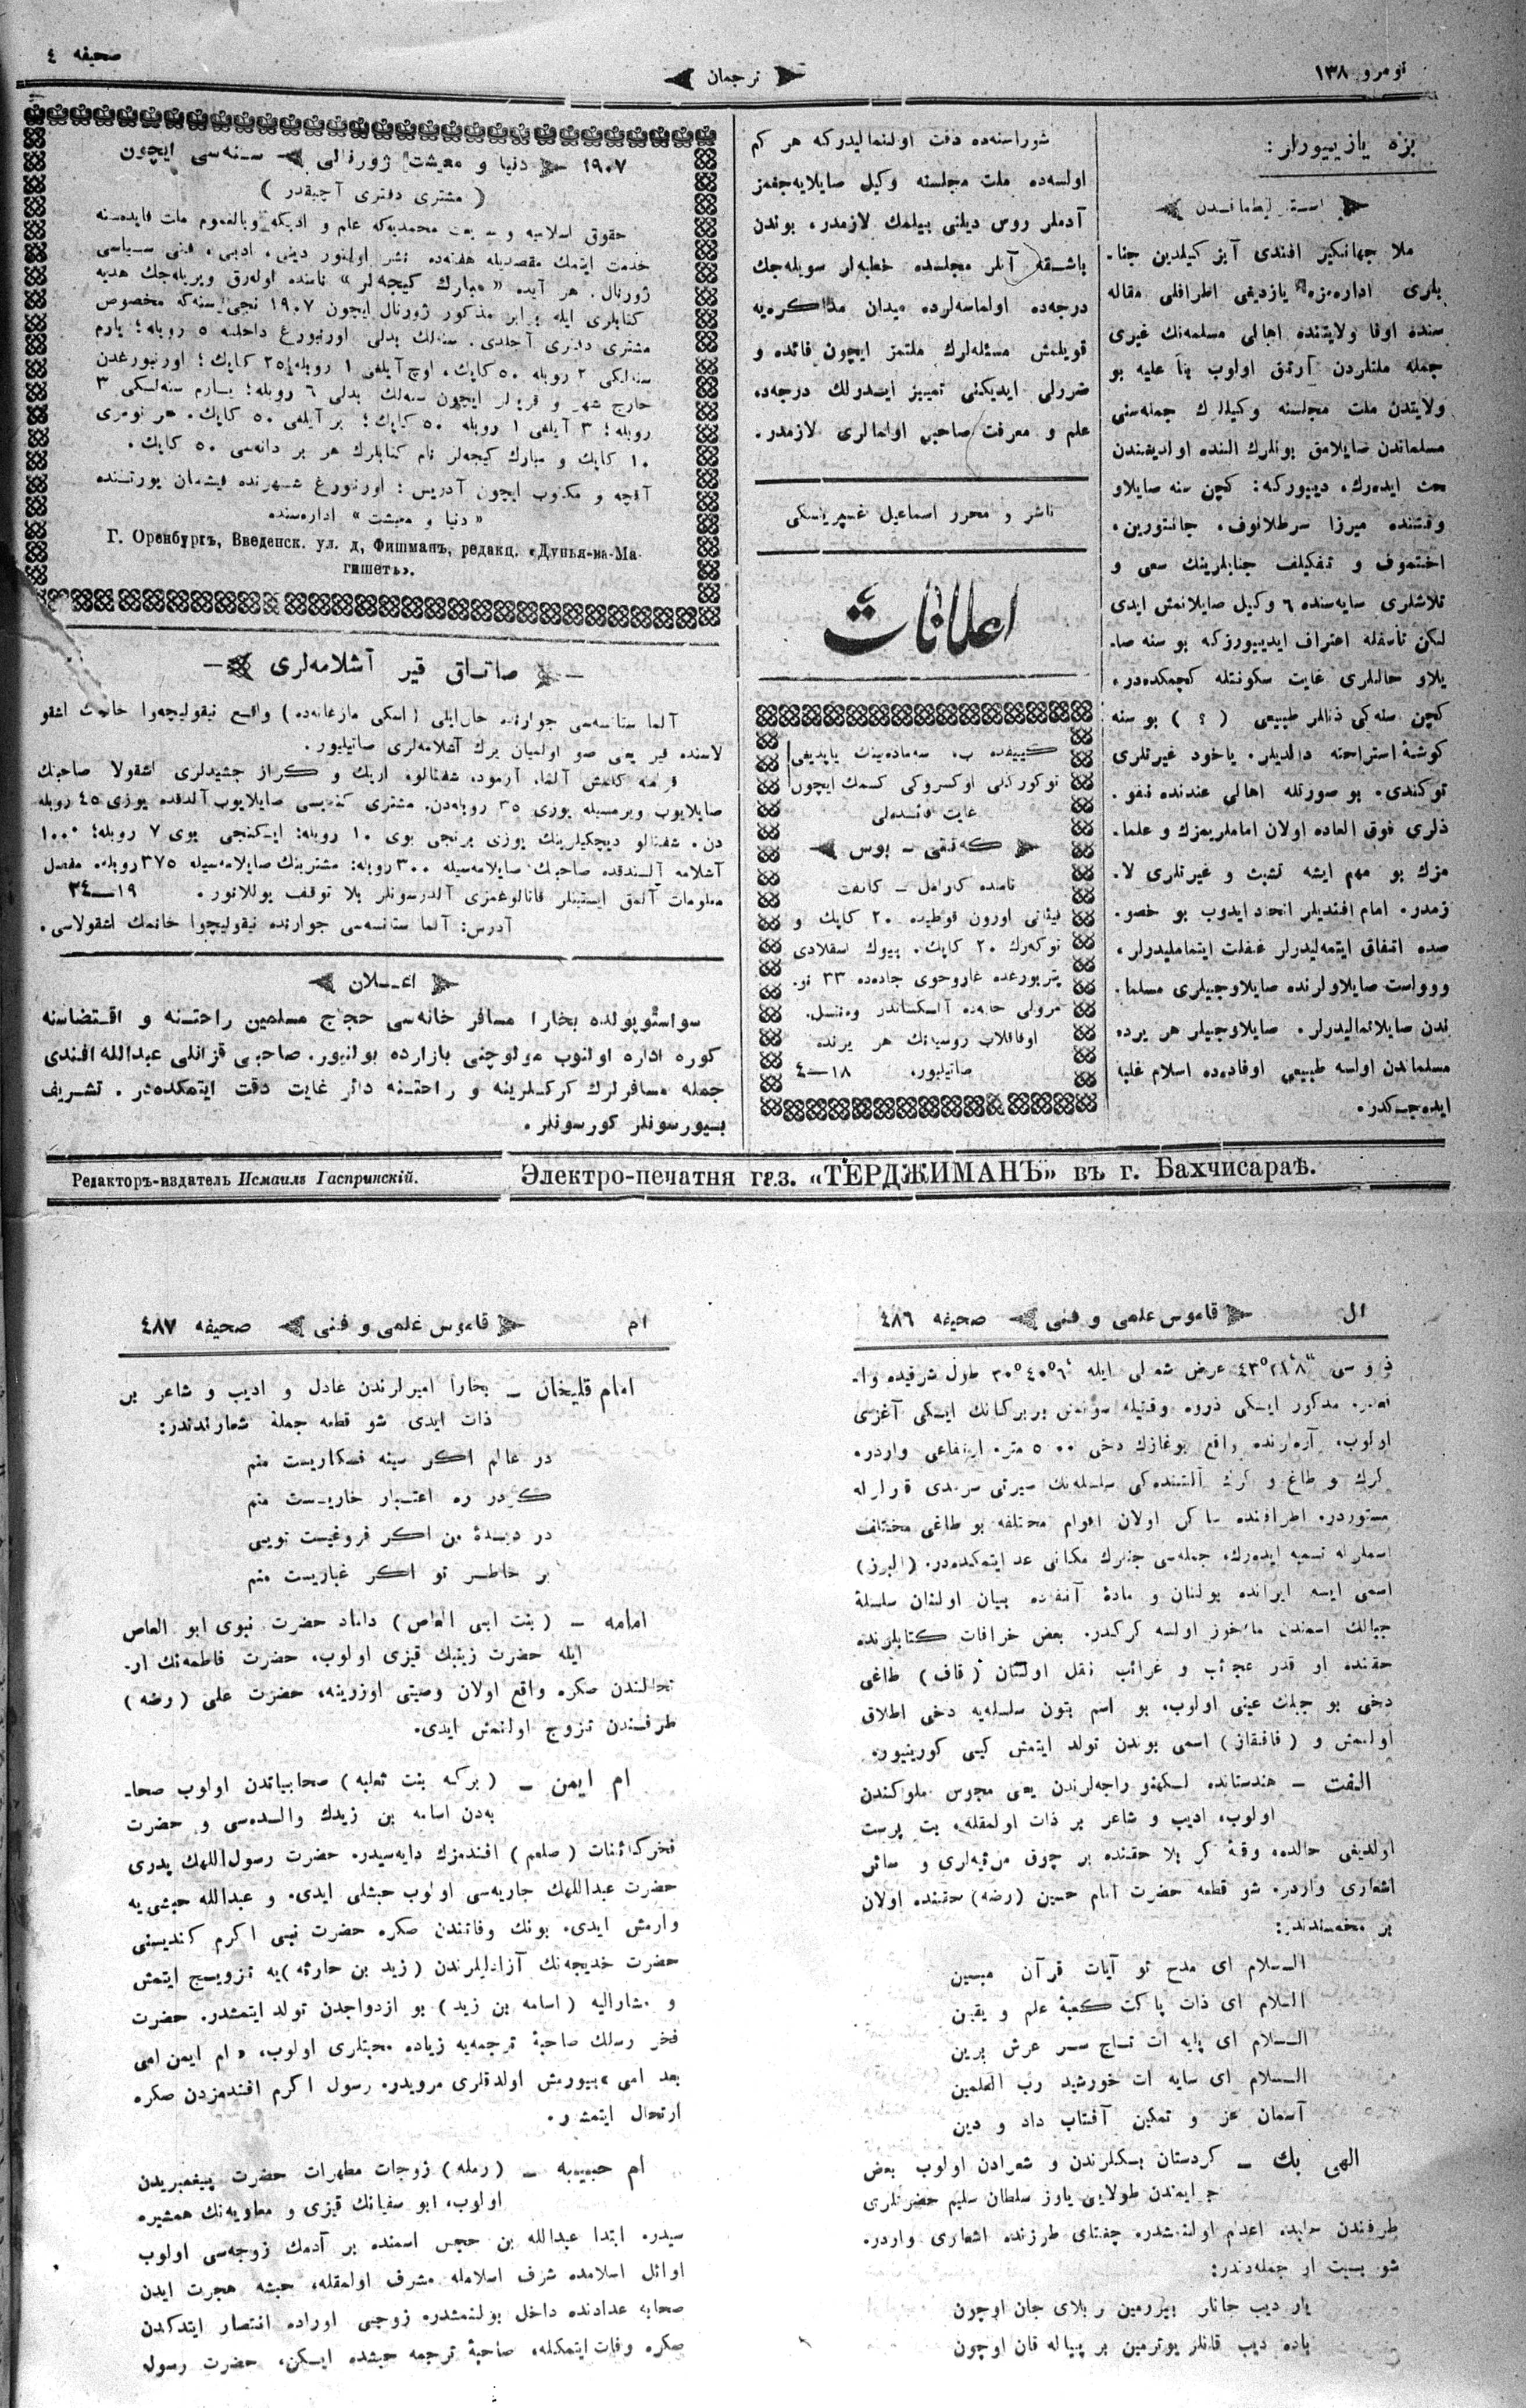 نومرو ١٣٨
ترجمان
صحيفه ٤
بزه يازييورلر:
استرليطاماقدن
ملا جهانكير افندى آبز كيلدين جنا-
بلرى اداره‌مزه يازديغى اطرافلى مقاله
سنده اوفا ولايتنده اهالى مسلمه‌نك غيرى
جمله ملتلردن آرتق اولوب بناً عليه بو
ولايتدن ملت مجلسنه وكيللرك جمله‌سنى
مسلماندن صايلامق بونلرك النده اولديغندن
بحث ايده‌رك، ديبوركه: كچن سنه صايلاو
وقتنده ميرزا سرطلانوف، جانتورين،
اختموف و تفكيلف جنابلرينك سعى و
تلاشلرى سايه‌سنده ٦ وكيل صايلانمش ايدى
لكن تأسفله اعتراف ايدييورزكه بو سنه صا-
يلاو حاللرى غايت سكونتله كچمكده‌در،
كچن سنه‌كى ذاتلر طبيعى (؟) بو سنه
كوشۀ استراحته دالديلر. ياخود غيرتلرى
توكندى. بو صورتله اهالى عندنده نفو.
ذلرى فوق العاده اولان اماملريمزك و علما-
مزك بو مهم ايشه تشبث و غيرتلرى لا.
زمدر. امام افنديلر اتحاد ايدوب بو خصو.
صده اتفاق ايتمه‌ليدرلر غفلت ايتماميدرلر،
وولوست صايلاولرنده صايلاوجيلرى مسلما.
ندن صايلاتماليدرلر. صايلاوجيلر هر يرده
مسلماندن اولسه طبيعى اوفاده‌ده اسلام غلبه
ايده‌جكدر.
شوراسنه‌ده دقت اولنماليدركه هر كم
اولسه‌ده ملت مجلسنه وكيل صايلايه‌جغمز
آدملر روس ديلنى بيلمك لازمدر. بوندن
باشقه آنلر مجلسده خطبه‌لر سويله‌جك
درجه‌ده اولماسه‌لرده ميدان مذاكره‌يه
قويلمش مسئله‌لرك ملتمز ايچون فائده و
ضررلى ايديكنى تمييز ايده‌رلك درجه‌ده
علم و معرفت صاحبى اولمالرى لازمدر.
ناشر و محرر اسماعيل غصپرينسكى
اعلانات
كييفده ب. سه‌ماده‌نينك ياپديغى
توكوركلى اوكسروكى كسمك ايچون
غايت فائده‌لى
كه‌تتى - بوس
نامنده كارامل - كانفت
فيئانى اورون قوطيده ٢٠ كاپك و
توكه‌رك ٢٠ كاپك. بيوك اسقلادى
پتربورغده غاروحوى جاده‌ده ٣٣ نو.
اوفاقلاب روسيه‌نك هر يرنده
صاتيليور. ١٨—٤
١٩٠٧ دنيا و معيشت ژورنالى سنه‌سى ايچون
(مشترى دفترى آچيقدر)
خدمت ايتمك مقصديله هفته‌ده نشر اولنور دينى، ادبى، فنى سياسى
ژورنال. هر آيده «مبارك كيجه‌لر» نامنده اوله‌رق ويريله‌جك هديه
كتابلرى ايله برابر مذكور ژورنال ايچون ١٩٠٧ نجى سنه‌كه مخصوص
مشترى دفترى آچلدى. سنه‌لك بدلى اورنبورغ داخلنه ٥ روبله؛ يارم
سنه‌لكى ٢ روبله ٥٠ كاپك، اوچ آيلغى ١ روبله ٢٥ كاپك؛ اورنبورغدن
خارج شهر و قريه‌لر ايچون سنه‌لك بدلى ٦ روبله؛ يارم سنه‌لكى ٣
روبله؛ ٣ آيلغى ١ روبله ٥٠ كاپك؛ بر آيلغى ٥٠ كاپك. هر نومرى
١٠ كاپك و مبارك كيجه‌لر نام كتابلرك هر بر دانه‌سى ٥٠ كاپك.
آقچه و مكتوب ايچون آدريس: اورنبورغ شهرنده فيشمان يورتنده
«دنيا و معيشت» اداره‌سنده
Г. Оренбургъ, Введенск. ул. д, Фишманъ, редакц. «Дунья-ва-Ма-
гишетъ».
صاتلق قير آشلامه‌لرى
آلما ستانسه‌سى جوارنده حان‌ايلى (اسكى مازغانه‌ده) واقع نيقوليچه‌وا خانمك اشقو
لاسنده قير يعنى صو اولميان يرك آشلامه‌لرى صاتيليور.
قرمه كلمش آلما، آرمود، شفتالو، اريك و كراز جشيدلرى اشقولا صاحبنك
صايلايوب ويرمسيله يوزى ٣٥ روبله‌دن. مشترى كنديسى صايلايوب آلدقده يوزى ٤٥ روبله
دن. شفتالو ديچكيلرينك يوزى برنجى بوى ١٠ روبله؛ ايكنجى بوى ٧ روبله؛ ١٠٠٠
آشلامه آلندقده صاحبك صايلامه‌سيله ٣٠٠ روبله: مشترينك صايلامه‌سيله ٣٧٥ روبله. مفصل
معلومات آلمق ايستينلر قاتالوغمزى آلدرسونلر بلا توقف يوللانور. ١٩—٣٤
آدرس: آلما ستانسه‌سى جوارنده نيقوليچوا خانمك اشقولاسى.
اعلان
سواستوپولده بخارا مسافر خانه‌سى حجاج مسلمين راحتنه و اقتضاسنه
كوره اداره اولنوب مولوچنى بازارده بولنيور. صاحبى قزانلى عبدالله افندى
جمله مسافرلرك كركلرينه و راحتنه دائر غايت دقت ايتمكده‌در. تشريف
بيورسونلر كورسونلر.
Редакторъ-издатель Исмаилъ Гаспринскій.
Электро-печатня газ. «ТЕРДЖИМАНЪ» въ г. Бахчисараѣ.
ال قاموس علمى و فنى صحيفه ٤٨٦
عرض شمالى ايله طول شرقيده وا-
قعدر. مذكور ايكى ذروه وقتيله سونمش بربركانك ايكى آغزى
اولوب، آره‌لرنده واقع بوغازك دخى ٥٠٠٠ متره ارتفاعى واردر.
كرك و طاغ و كرك آلتنده‌كى سلسله‌نك سيرتى سرمدى قارلرله
مستوردر. اطرافنده ساكن اولان اقوام مختلفه بو طاغى مختلف
اسملرله تسميه ايده‌رك، جمله‌سى جنلرك مكانى عد ايتمكده‌در. (البرز)
اسمى ايسه ايرانده بولنان و مادۀ آنفه‌ده بيان اولنان سلسلۀ
جبالك اسمندن مأخوذ اولسه كركدر. بعض خرافات كتابلرنده
حقنده او قدر عجائب و غرائب نقل اولنان (قاف) طاغى
دخى بو جبلك عينى اولوب، بو اسم بتون سلسله‌يه دخى اطلاق
اولنمش و (قافقاز) اسمى بوندن تولد ايتمش كبى كورينيور.
الفت - هندستانده لكهنو راجه‌لرندن يعنى مجوس ملوكندن
اولوب، اديب و شاعر بر ذات اولمقله، بت پرست
اولديغى حالده، وقعۀ كربلا حقنده بر چوق مرثيه‌لرى و سائر
اشعارى واردر. شو قطعه حضرت امام حسين (رضه) حقنده اولان
بر مخمسندندر:
السلام اى مدح تو آيات قرآن مبين
السلام اى ذات پاكت كعبۀ علم و يقين
السلام اى پايه ات تاج سر عرش برين
السلام اى سايه ات خورشيد رب العلمين
آسمان عز و تمكين آفتاب داد و دين
الهى بك - كردستان بكلرندن و شعرادن اولوب بعض
جرايمندن طولايى ياوز سلطان سليم حضرتلرى
طرفندن حلبده اعدام اولنمشدر. چغتاى طرزنده اشعارى واردر.
شو بيت او جمله‌دندر:
يار ديب جانلر بيررمين بر بلاى جان اوچون
باده ديب قانلر يوترمين بر پياله قان اوچون
ام قاموس علمى و فنى صحيفه ٤٨٧
امام قليخان - بخارا اميرلرندن عادل و اديب و شاعر بر
ذات ايدى شو قطعه جملۀ شعارندندر:
در عالم اكر سينه فكاريست منم
كر در ره اعتبار خاريست منم
در ديدۀ من اكر فروغيست تويى
بر خاطر تو اكر غباريست منم
امامه - (بنت ابى العاص) داماد حضرت نبوى ابو العاص
ايله حضرت زينبك قيزى اولوب، حضرت فاطمه‌نك ار-
تحالندن صكره واقع اولان وصيتى اوزرينه، حضرت على (رضه)
طرفندن تزوج اولنمش ايدى.
ام ايمن - (بركه بنت ثعلبه) صحابياتدن اولوب صحا-
به‌دن اسامه بن زيدك والده‌سى و حضرت
فخر كائنات (صلعم) افندمزك دايه‌سيدر. حضرت رسول اللهك پدرى
حضرت عبداللهك جاريه‌سى اولوب حبشلى ايدى. و عبدالله حبشى‌يه
وارمش ايدى. بونك وفاتندن صكره حضرت نبى اكرم كنديسنى
حضرت خديجه‌نك آزادليلرندن (زيد بن حارثه)يه تزويج ايتمش
و مشاراليه (اسامه بن زيد) بو ازدواجدن تولد ايتمشدر. حضرت
فخر رسلك صاحبۀ ترجمه‌يه زياده محبتلرى اولوب، «ام ايمن امى
بعد امى» بيورمش اولدقلرى مرويدر. رسول اكرم افندمزدن صكره
ارتحال ايتمشدر.
ام حبيبه - (رمله) زوجات مطهرات حضرت پيغمبريدن
اولوب، ابو سفيانك قيزى و معاويه‌نك همشيره
سيدر. ابتدا عبدالله بن حجش اسمنده بر آدمك زوجه‌سى اولوب
اوائل اسلامده شرف اسلامله مشرف اولمقله، حبشه هجرت ايدن
صحابه عدادنده داخل بولنمشدر. زوجى اوراده انتصار ايتدكدن
صكره وفات ايتمكله، صاحبۀ ترجمه حبشده ايكن، حضرت رسول